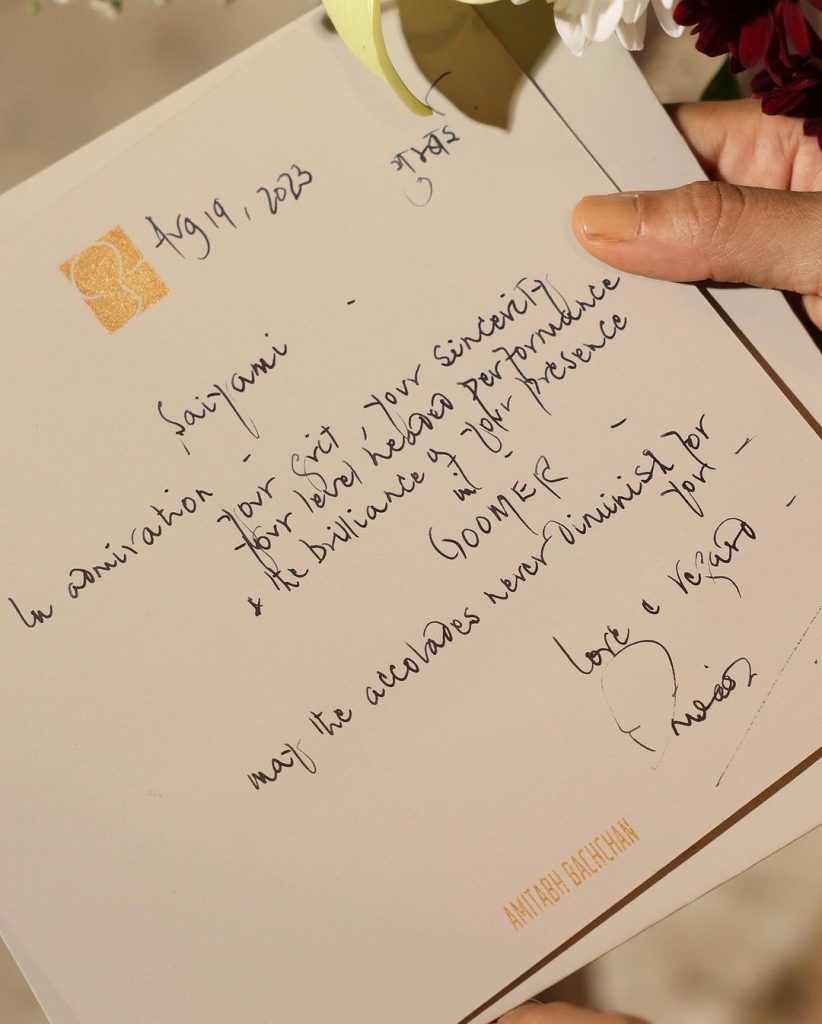 Aug 19, 2023
मुम्बई
Saiyami -
In admiration -
your grit, your sincerity
your level headed performance
& the brilliance of your presence
in -
GOOMER -
may the accolades never diminish for
you -
love & regard -
AMITABH BACHCHAN